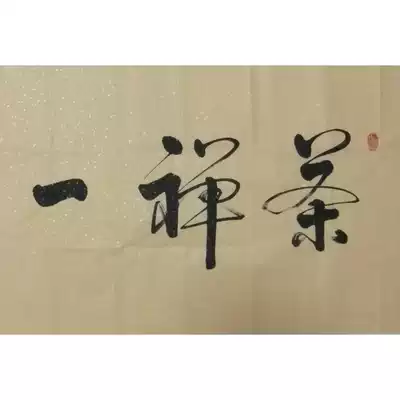 茶禅一